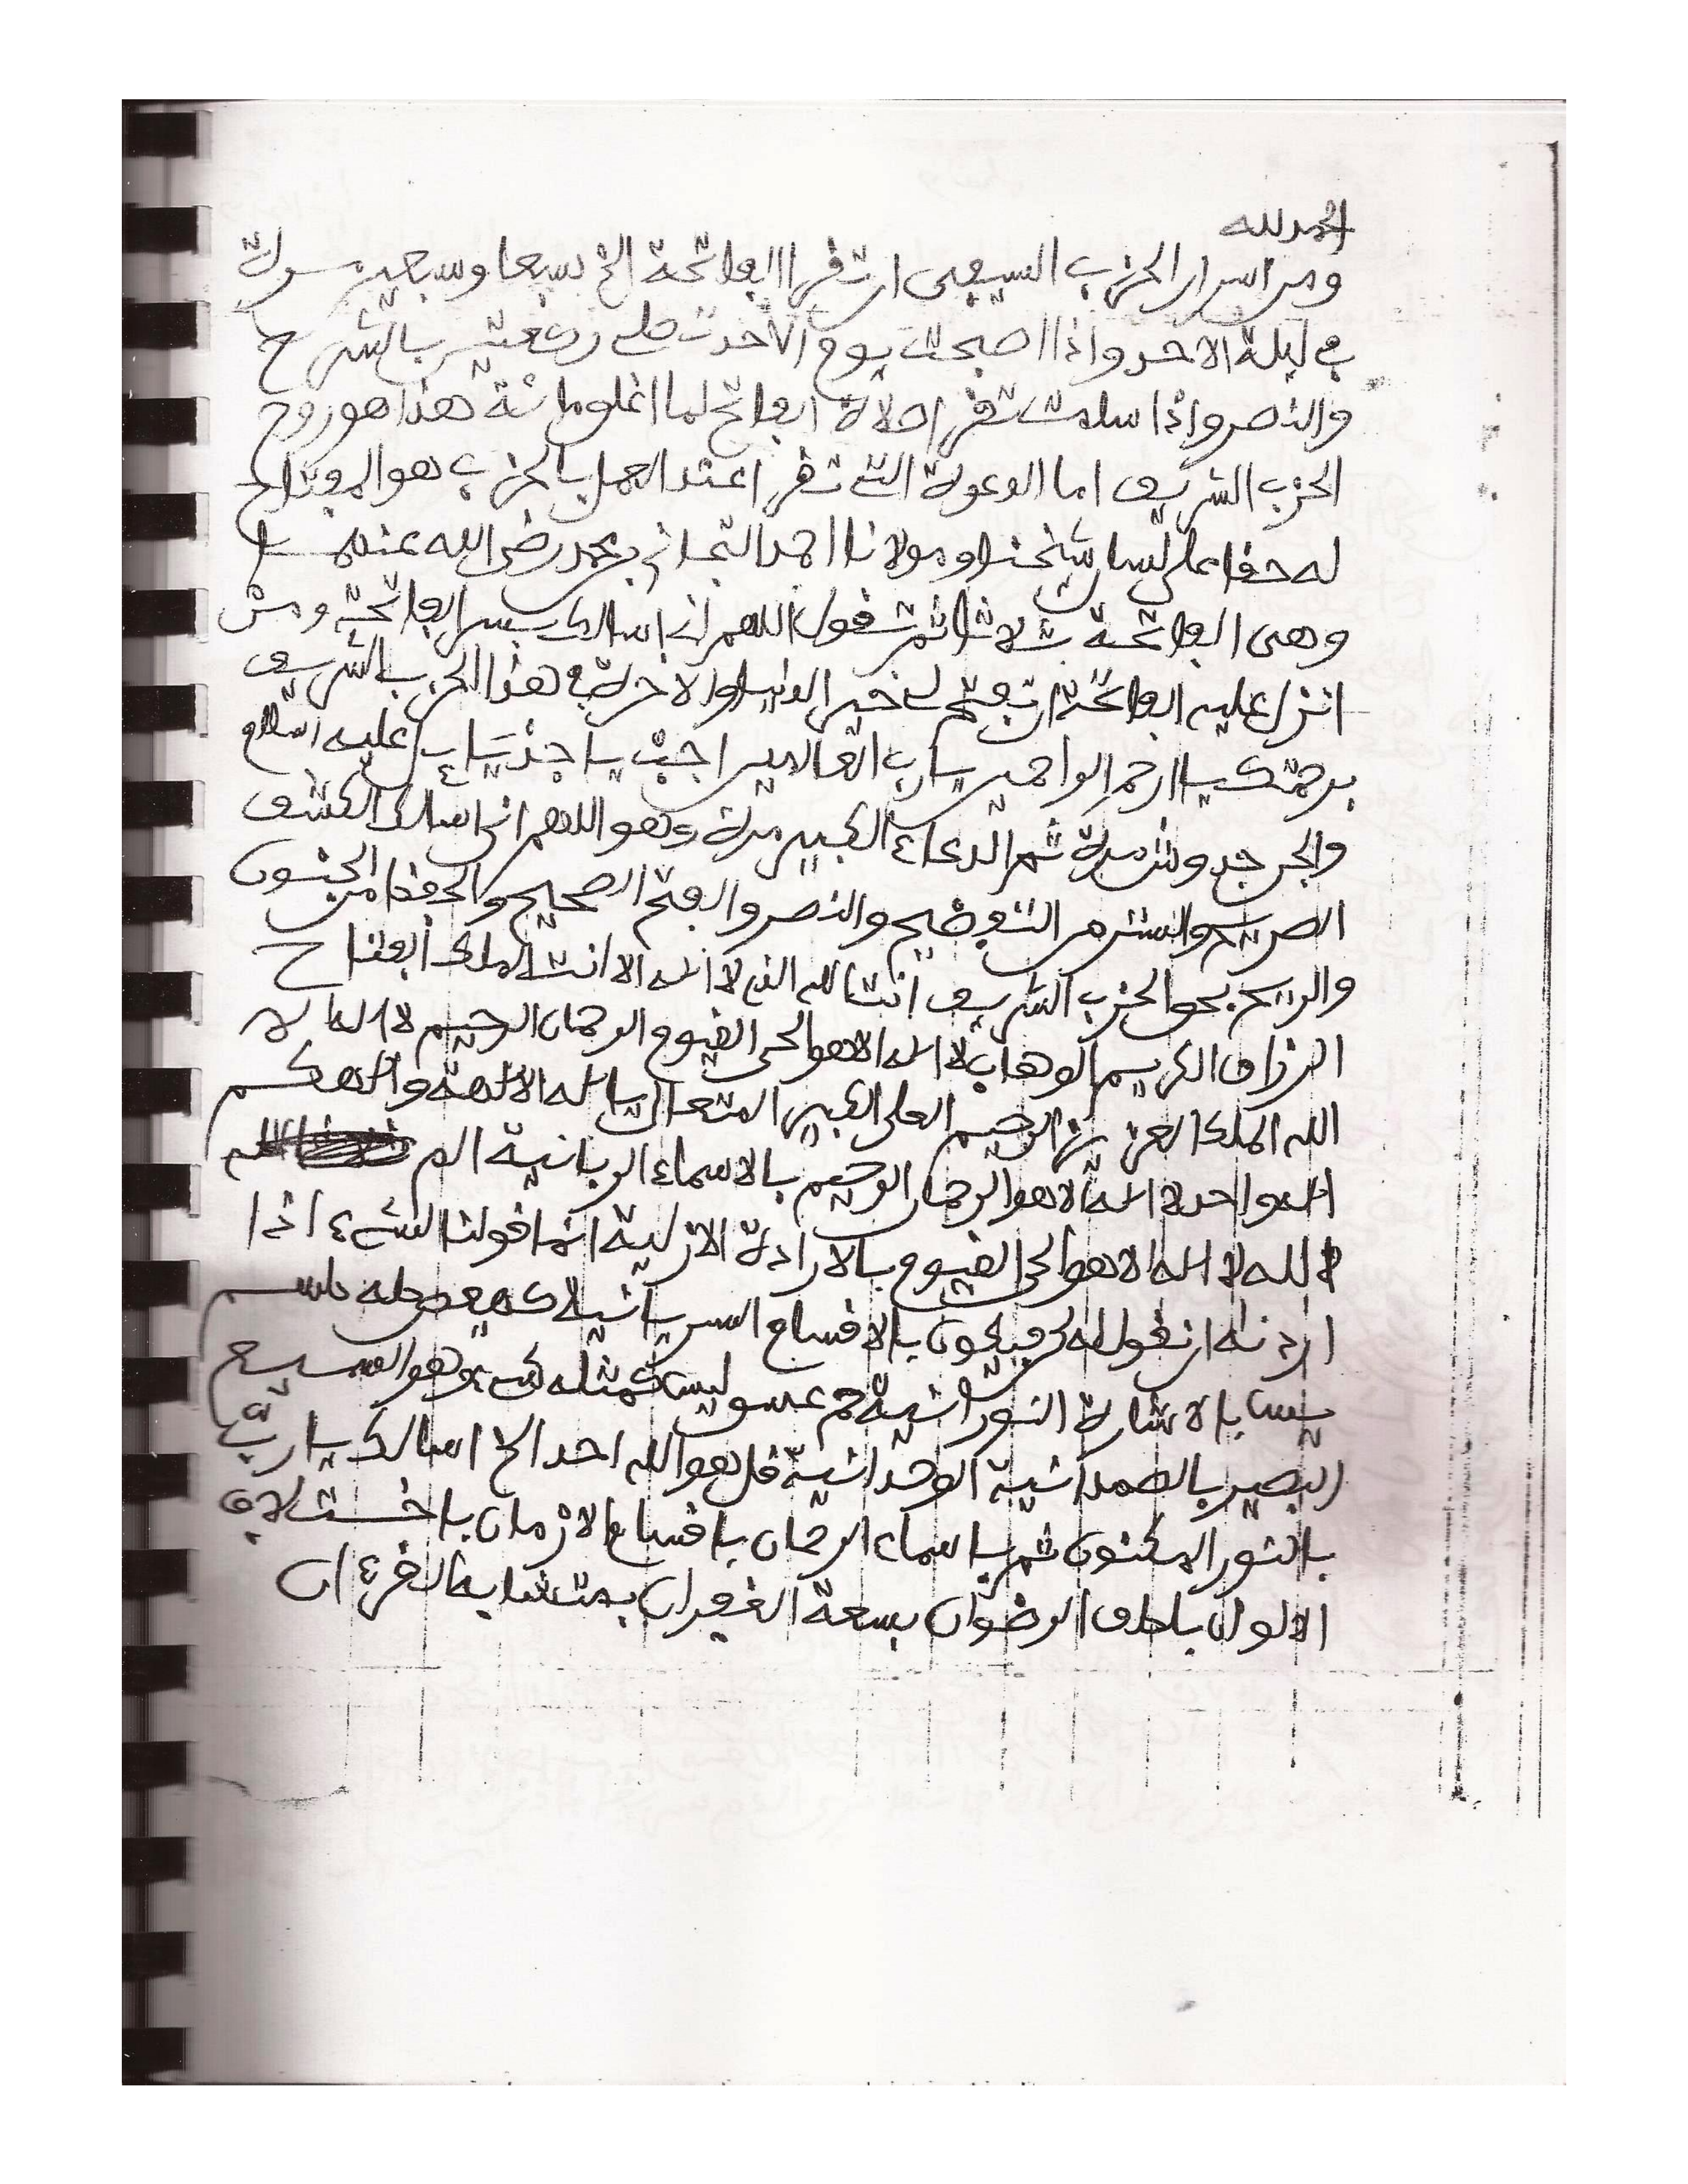 الحمد لله
ومن اسرار الحزب السيفى ان تقرا الفاتحة الخ سبعا وسبعين سورة
في ليلة الاحد واذا اصبحت يوم الاحد صلي ركعتين بالشرح
والنصر واذا سلمت تقرا صلاة الفاتح لما اغلق مائة هذا هو روح
الحزب الشريف اما الدعوة التي تقرا عند العمل بالحزب هو المفتاح
له حقا على لسان شيخنا ومولانا احمد التجاني بن محمد رضي الله عنهما
وهى الفاتحة ثلاثا ثم تقول اللهم اني اسالك بسر الفاتحة ومن
انزل عليه الفاتحة ان تفتح لي خير الدنيا والاخرة في هذا الحزب الشريف
برحمتك يا ارحم الراحمين يا رب العالمين اجب يا جذيايل عليه السلام
مرة ثم الدعاء الكبير مرة وهو اللهم انى اسالك الكشف
الصريح والستر من التفضيح والنصر والفتح الصحيح والحفظ من الجنون
والريح بحق الحزب الشريف انت الله الذي لا اله الا انت الملك الفتاح
الرزاق الكريم الوهاب لا اله الا هو الحى القيوم الرحمان الرحيم لا اله الا
الله الملك العزيز الرحيم العلى الكبير المتعال يا اله الالهة والهكم
اله واحد لا اله الا هو الرحمان الرحيم بالاسماء الربانية الم
الله لا اله الا هو الحى القيوم بالارادة الازلية انما قولنا لشيء اذا
اردنه ان نقول له كن فيكون بالاقسام السريانية كهيعص طه طسم
يس بالاشارة النورانية حم عسق ليس كمثله شيء وهو السميع
البصير بالصمدانية الوحدانية قل هو الله احد الخ اسالك يا رب
بالنور المكنون ثم باسماء الرحمان باقسام الازمان باختلاف
الالوان باطاف الرضوان بسعة الغفران بمتشابه القرءان